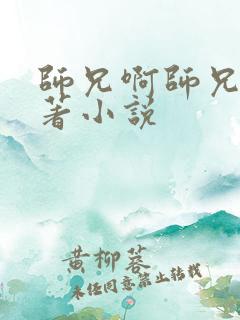 師兄啊師兄
著小説
黄柳蓉
未经同意禁止转载